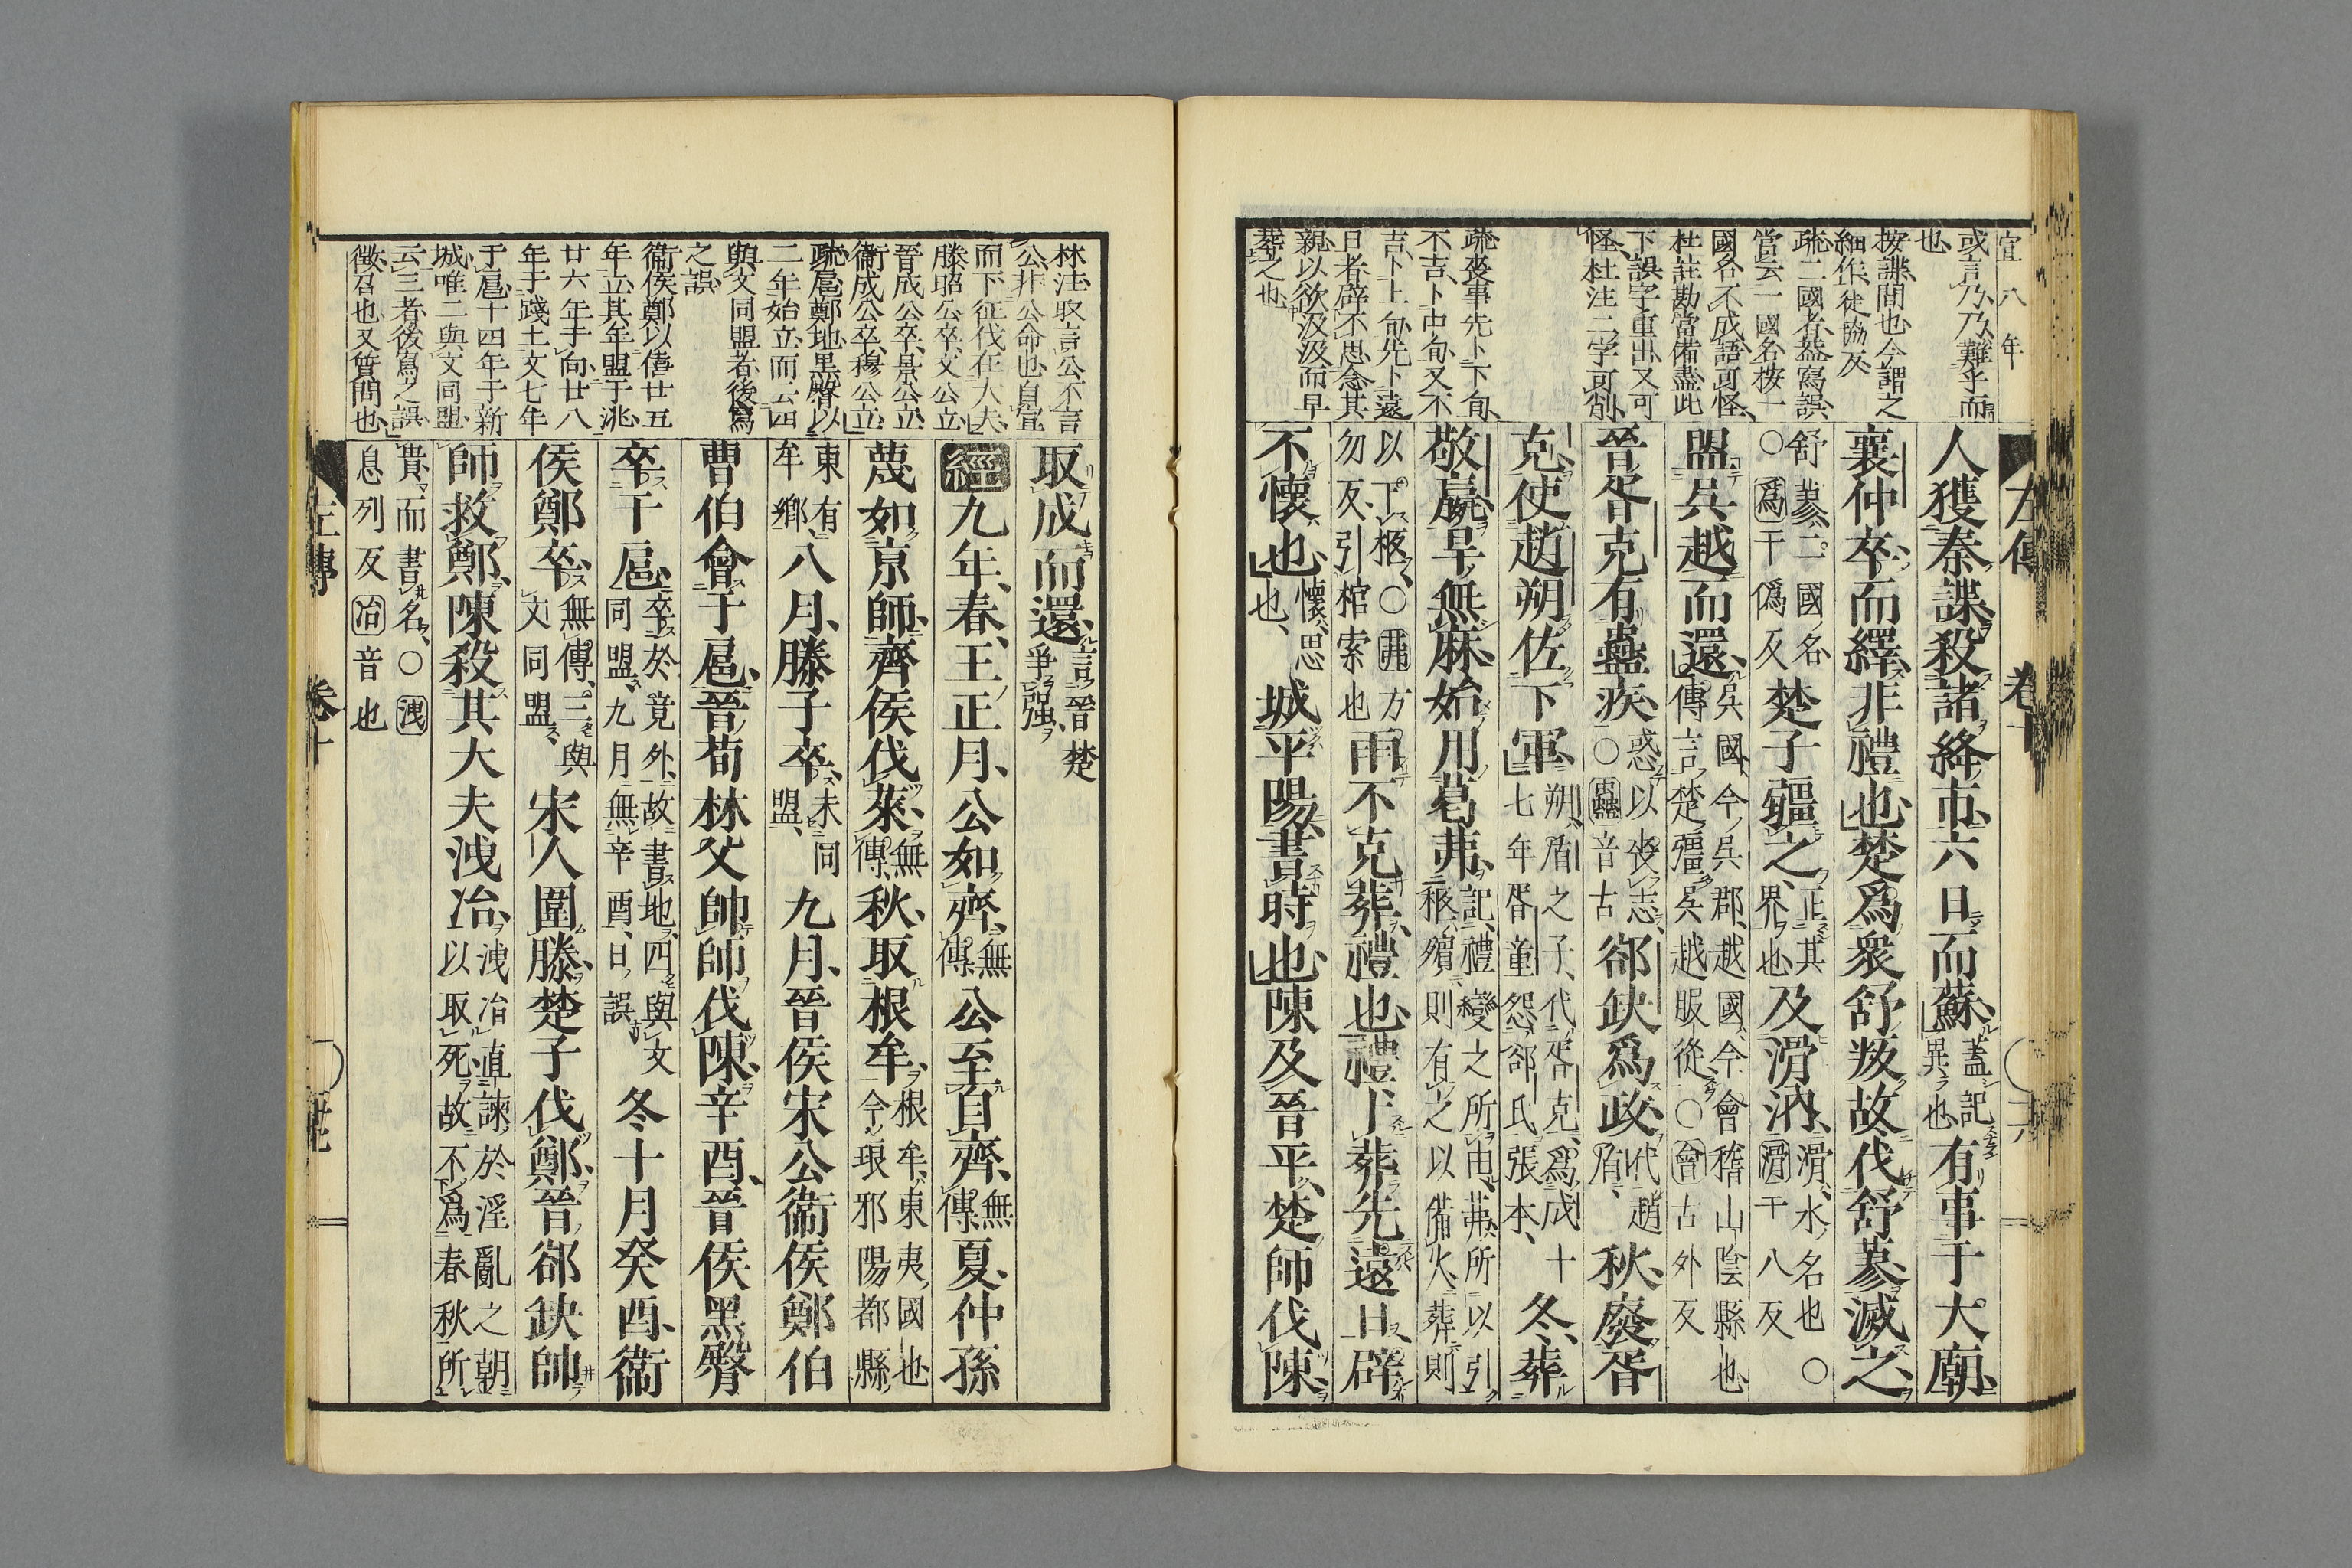 宣八年
或言乃乃難乎而
也
按諜間也今謂之
細作徒協反
疏二國者葢寫誤
當云一國名按一
國名不成語可怪
杜註勘當備盡此
下誤字重出又可
怪杜注二字可削
疏喪事先卜下旬
不吉卜中旬又不
吉卜上旬先卜遠
日者辟不思念其
親以欲汲汲而早
葬之也
左傳 卷十
人獲秦諜殺諸絳市六日而蘇蓋記異也有事于大廟
襄仲卒而繹非禮也楚爲衆舒叛故伐舒蓼滅之
舒蓼二國名○爲于僞反楚子疆之正其界也及滑汭滑水名也○滑于八反
盟吳越而還吳國今吳郡越國今會稽山陰縣也傳言楚彊吳越服從○會古外反
晉胥克有蠱疾惑以喪志○蠱音古郤缺爲政代趙盾秋廢胥
克使趙朔佐下軍朔盾之子代胥克爲成十七年胥童怨郤氏張本冬葬
敬嬴旱無麻始用葛茀記禮變之所由茀所以引柩殯則有之以備火葬則
以下柩○茀方勿反引棺索也雨不克葬禮也禮卜葬先遠日辟
不懷也懷思也城平陽書時也陳及晉平楚師伐陳
林注取言公不言
公非公命也自宣
而下征伐在大夫
滕昭公卒文公立
晉成公卒景公立
衞成公卒穆公立
疏扈鄭地黑臀以
二年始立而云四
與文同盟者後寫
之誤
衞侯鄭以僖廿五
年立其年盟于洮
廿六年于向廿八
年于踐土文七年
于扈十四年于新
城唯二與文同盟
云三者後寫之誤
徵召也又質問也
取成而還言晉楚爭强
經九年春王正月公如齊無傳公至自齊無傳夏仲孫
蔑如京師齊侯伐萊無傳秋取根牟根牟東夷國也今琅邪陽都縣
東有牟鄉八月滕子卒未同盟九月晉侯宋公衞侯鄭伯
曹伯會于扈晉荀林父帥師伐陳辛酉晉侯黑臀
卒于扈卒於竟外故書地四與文同盟九月無辛酉日誤冬十月癸酉衞
侯鄭卒無傳三與文同盟宋人圍滕楚子伐鄭晉郤缺帥
師救鄭陳殺其大夫洩冶洩冶直諫於淫亂之朝以取死故不爲春秋所
貴而書名○洩息列反冶音也
左傳 卷十